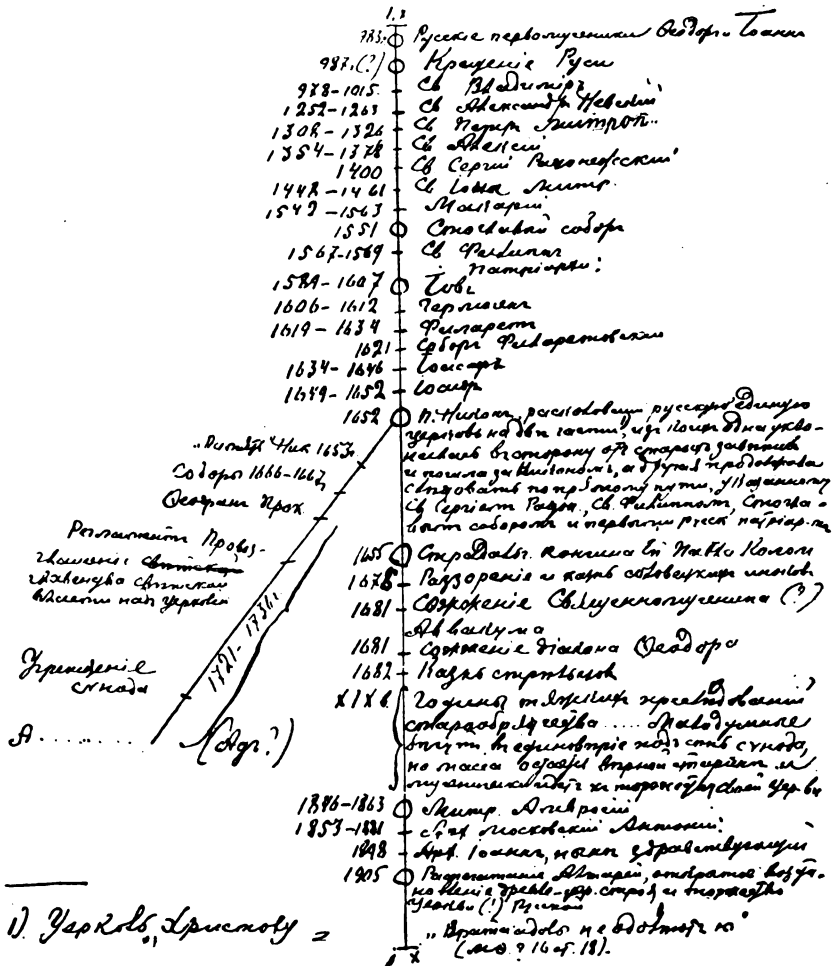 I. X
983. Русскіе первомученики Ѳеодоръ и Іоаннъ
987. (?) Крещеніе Руси
978-1015 Св Владиміръ
1252-1263 Св Александръ Невскій
1308-1326 Св Петръ митроп.
1354-1378 Св Алексій
1400 Св Сергій Радонежскій
1448-1461 Св Іона митр.
1542-1563 Макарій
1551 Стоглавый соборъ
1567-1569 Св Филиппъ
Патріархи:
1589-1607 Іовъ
1606-1612 Гермогенъ
1619-1634 Филаретъ
1621 Соборъ Филаретовскій
1634-1646 Іоасафъ
1649-1652 Іосифъ
1652 П. Никонъ, расколовшій русскую единую
церковь на двѣ части, изъ коихъ одна
въ сторону отъ старыхъ
и пошла за Никономъ, а другая продолжала
слѣдовать по прямому пути, указанному
Св Сергіемъ Радон., Св. Филиппомъ, Стогла-
вымъ соборомъ и первыми русск патріар.
"Ник 1653г.
Соборы 1666-1667
Ѳеофанъ Прок.
Регламентъ Провоз-
глашеніе
главенства свѣтской
власти надъ церковью
1721-1736г.
Учрежденіе
синода
А..........
(Адъ?)
1655 Страдальч. кончина Еп Павла Колом
1676 Раззореніе и казнь соловецкихъ иноковъ
1681 Сожженіе Священномученика (?)
Аввакума
1681 Сожженіе діакона Ѳеодора
1682 Казнь стрѣльцовъ
XIX в. Годины тяжкихъ преслѣдованій
старообрядчества ..... Малодушные
въ единовѣріе подъ синода,
но масса вѣрной старинѣ и
мученически идетъ къ церкви
1846-1863 Митр. Амвросій
1853-1881 Московскій Антоній.
1898 Арх. Іоаннъ, нынѣ здравствующій
1905 Распечатаніе Алтарей, открытое возоб-
новленіе древле-цер. строя и торжество
Церкви (!) Русской
1). Церковь, Христову =
"Врата адовы не одолѣютъ ю"
(Мѳ. 16 ст. 18).
X